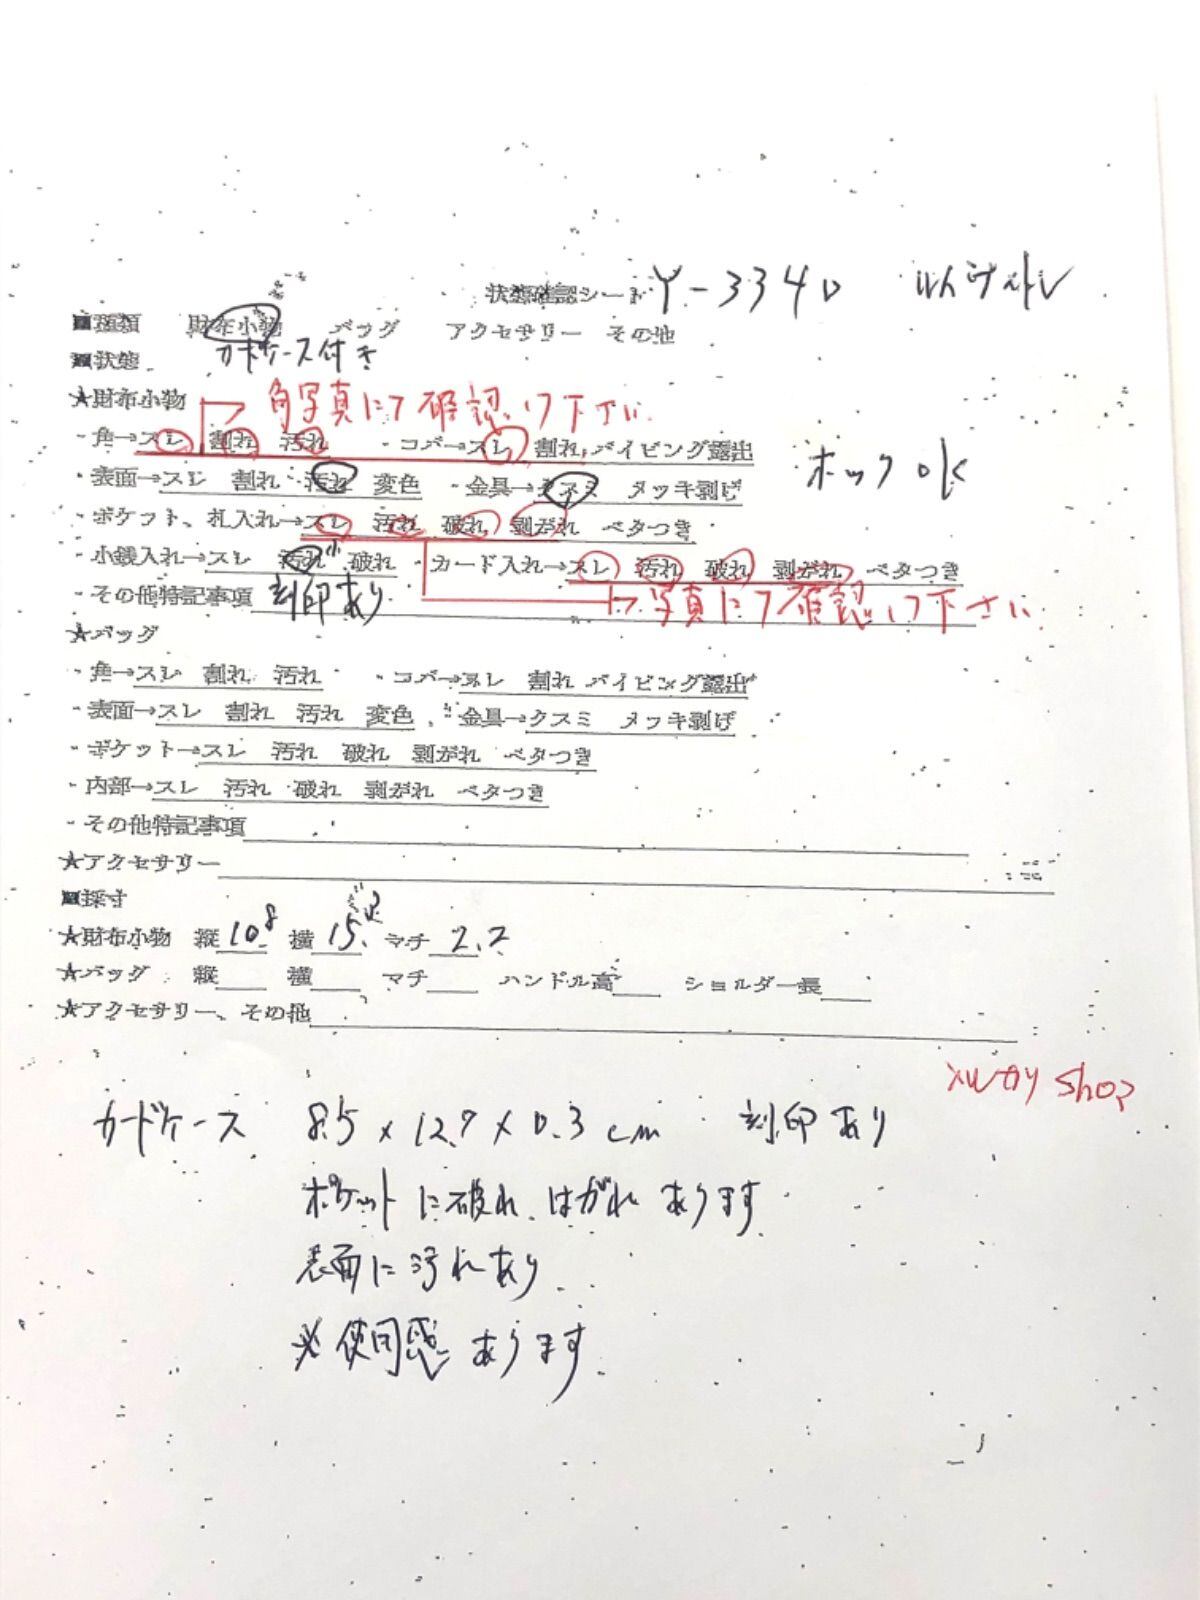 状態確認シート Y-3340 ルイヴィトン
■種類 財布小物 バッグ アクセサリー その他
■状態 カードケース付き
★財布小物 角写真にて確認して下さい
・角→スレ 割れ 汚れ ・コバ→スレ 割れ パイピング露出
・表面→スレ 割れ 汚れ 変色 ・金具→クスミ メッキ剥げ ホックOK
・ポケット、札入れ→スレ 汚れ 破れ 剥がれ ベタつき
・小銭入れ→スレ 汚れ 小 破れ ・カード入れ→スレ 汚れ 破れ 剥がれ ベタつき
・その他特記事項 刻印あり 写真にて確認して下さい
★バッグ
・角→スレ 割れ 汚れ ・コバ→スレ 割れ パイピング露出
・表面→スレ 割れ 汚れ 変色 ・金具→クスミ メッキ剥げ
・ポケット→スレ 汚れ 破れ 剥がれ ベタつき
・内部→スレ 汚れ 破れ 剥がれ ベタつき
・その他特記事項
★アクセサリー
■採寸
★財布小物 縦 10.8 横 15.2 マチ 2.2
★バッグ 縦 横 マチ ハンドル高 ショルダー長
★アクセサリー、その他
shop
カードケース 8.5×12.7×0.3cm 刻印あり
ポケットに破れ、はがれあります
表面に汚れあり
※使用感あります